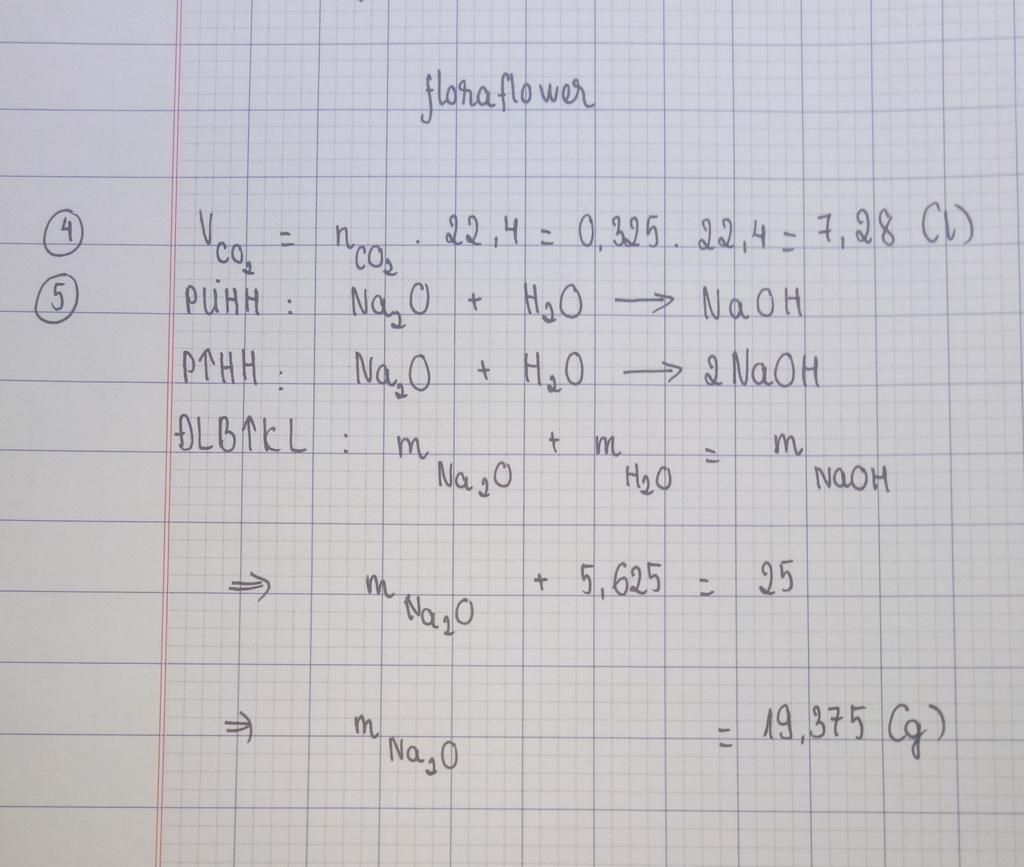 floraflower
④ V_CO₂ = n_CO₂ . 22,4 = 0,325 . 22,4 = 7,28 (l)
⑤ PƯHH : Na₂O + H₂O ⟶ NaOH
PTHH : Na₂O + H₂O ⟶ 2NaOH
ĐLBTKL : m_Na₂O + m_H₂O = m_NaOH
⇒ m_Na₂O + 5,625 = 25
⇒ m_Na₂O = 19,375 (g)